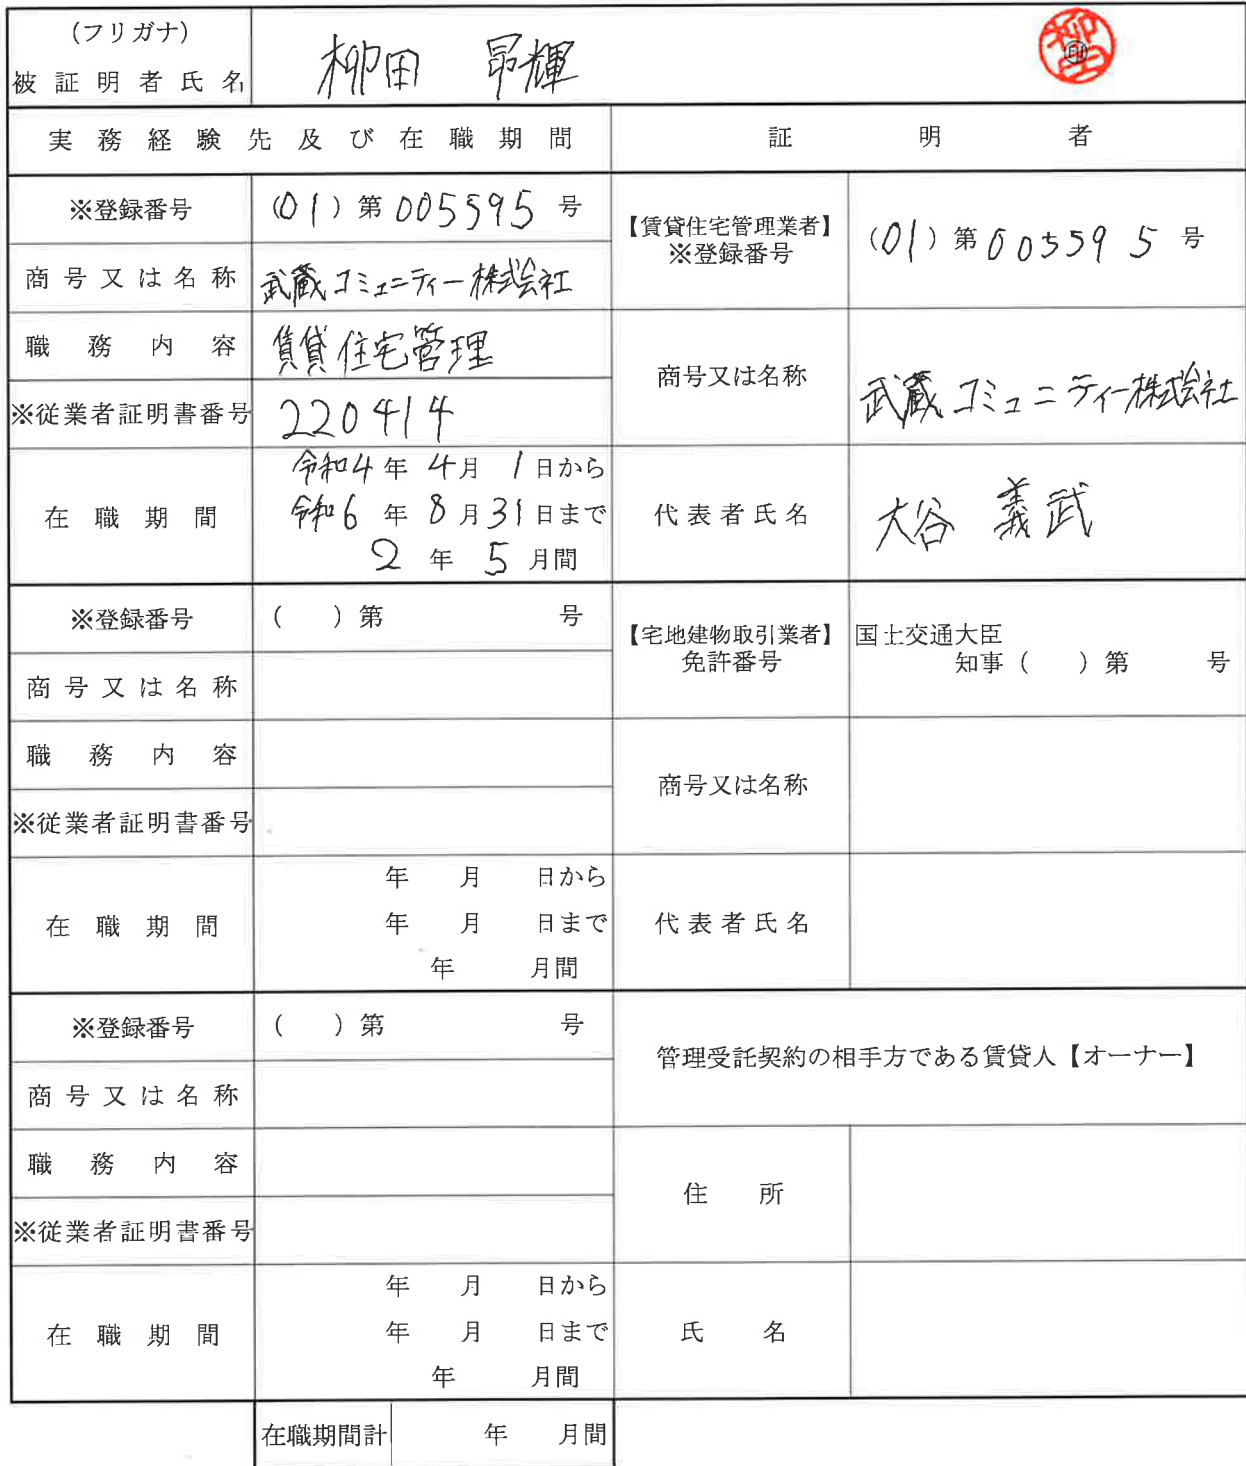 (フリガナ)
被証明者氏名 柳田 昴輝 ㊞
実務経験先及び在職期間 証明者
※登録番号 (01)第005595号
商号又は名称 武蔵コミュニティー株式会社
職務内容 賃貸住宅管理
※従業者証明書番号 220414
在職期間 令和4年4月1日から
令和6年8月31日まで
2年5月間
【賃貸住宅管理業者】
※登録番号 (01)第005595号
商号又は名称 武蔵コミュニティー株式会社
代表者氏名 大谷 義武
※登録番号 ( )第 号
商号又は名称
職務内容
※従業者証明書番号
在職期間 年 月 日から
年 月 日まで
年 月間
【宅地建物取引業者】 国土交通大臣
免許番号 知事( )第 号
商号又は名称
代表者氏名
※登録番号 ( )第 号
商号又は名称
職務内容
※従業者証明書番号
在職期間 年 月 日から
年 月 日まで
年 月間
管理受託契約の相手方である賃貸人【オーナー】
住所
氏名
在職期間計 年 月間